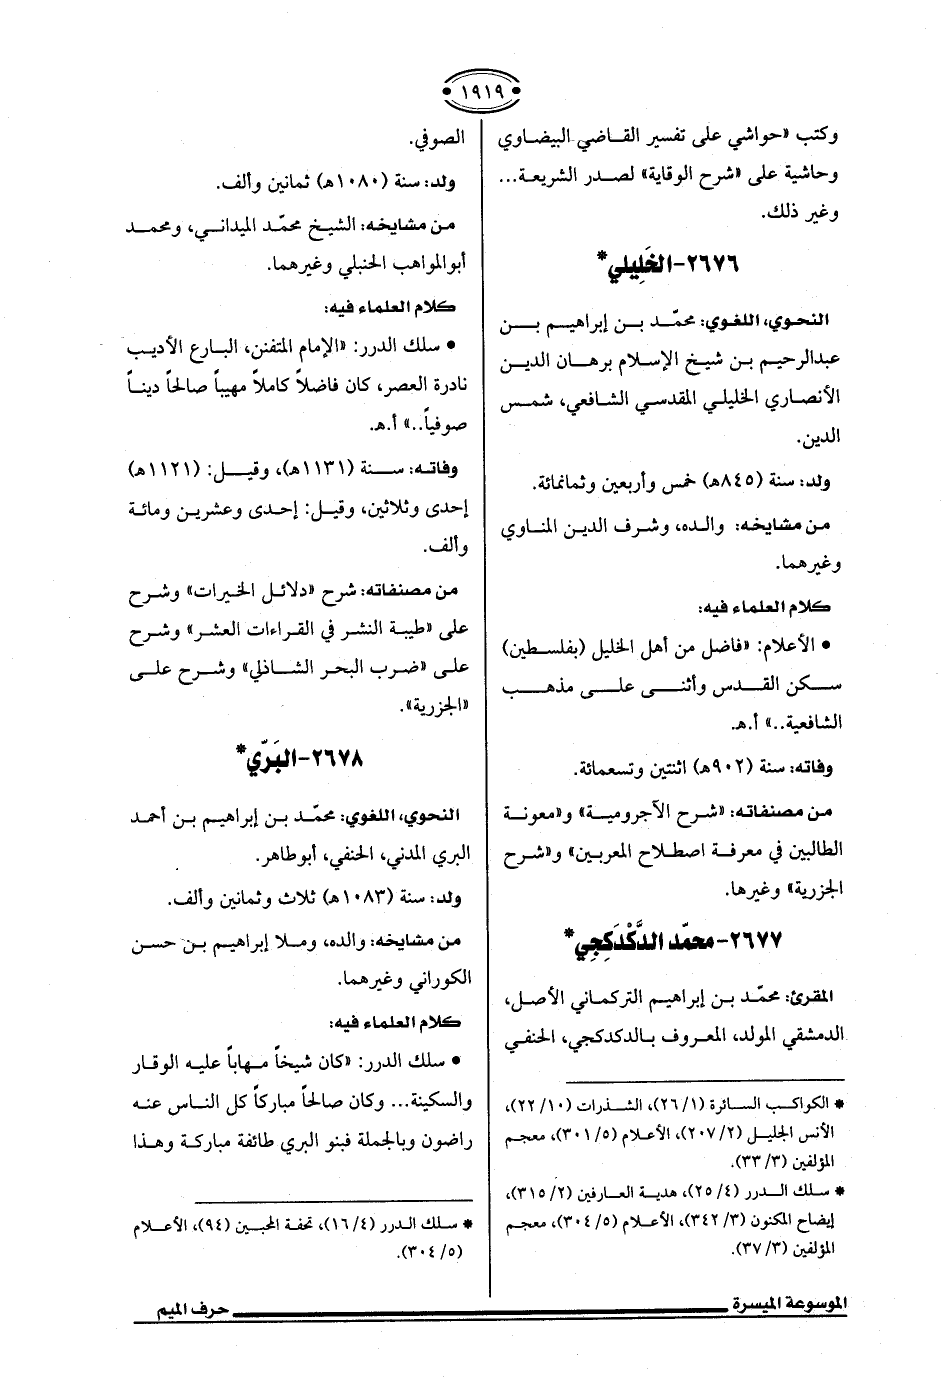 ١٩١٩
وكتب «حواشي على تفسير القاضي البيضاوي
وحاشية على «شرح الوقاية» لصدر الشريعة...
وغير ذلك.
٢٦٧٦-الخَلِيلي*
النحوي، اللغوي: محمّد بن إبراهيم بن
عبدالرحيم بن شيخ الإسلام برهان الدين
الأنصاري الخليلي المقدسي الشافعي، شمس
الدين.
ولد: سنة (٨٤٥هـ) خمس وأربعين وثمانمائة.
من مشايخه: والده، وشرف الدين المناوي
وغيرهما.
كلام العلماء فيه:
• الأعلام: «فاضل من أهل الخليل (بفلسطين)
سكن القدس وأثنى على مذهب
الشافعية..» أ.هـ.
وفاته: سنة (٩٠٢هـ) اثنتين وتسعمائة.
من مصنفاته: «شرح الآجرومية» و«معونة
الطالبين في معرفة اصطلاح المعربين» و«شرح
الجزرية» وغيرها.
٢٦٧٧-محمّد الدَّكْدَكِجي*
المقرئ: محمّد بن إبراهيم التركماني الأصل،
الدمشقي المولد، المعروف بالدكدكجي، الحنفي
* الكواكب السائرة (٢٦/١)، الشذرات (٢٢/١٠)،
الأنس الجليل (٢٠٧/٢)، الأعلام (٣٠١/٥)، معجم
المؤلفين (٣٣/٣).
* سلك الدرر (٢٥/٤)، هدية العارفين (٣١٥/٢)،
إيضاح المكنون (٣٤٢/٣)، الأعلام (٣٠٤/٥)، معجم
المؤلفين (٣٧/٣).
الصوفي.
ولد: سنة (١٠٨٠هـ) ثمانين وألف.
من مشايخه: الشيخ محمّد الميداني، ومحمد
أبوالمواهب الحنبلي وغيرهما.
كلام العلماء فيه:
• سلك الدرر: «الإمام المتفنن، البارع الأديب
نادرة العصر، كان فاضلاً كاملاً مهيباً صالحاً ديناً
صوفياً..» أ.هـ.
وفاته: سنة (١١٣١هـ)، وقيل: (١١٢١هـ)
إحدى وثلاثين، وقيل: إحدى وعشرين ومائة
وألف.
من مصنفاته: شرح «دلائل الخيرات» وشرح
على «طيبة النشر في القراءات العشر» وشرح
على «ضرب البحر الشاذلي» وشرح على
«الجزرية».
٢٦٧٨-البَرّي*
النحوي، اللغوي: محمّد بن إبراهيم بن أحمد
البري المدني، الحنفي، أبوطاهر.
ولد: سنة (١٠٨٣هـ) ثلاث وثمانين وألف.
من مشايخه: والده، وملا إبراهيم بن حسن
الكوراني وغيرهما.
كلام العلماء فيه:
• سلك الدرر: «كان شيخاً مهاباً عليه الوقار
والسكينة... وكان صالحاً مباركاً كل الناس عنه
راضون وبالجملة فبنو البري طائفة مباركة وهذا
* سلك الدرر (١٦/٤)، تحفة المحبين (٩٤)، الأعلام
(٣٠٤/٥).
الموسوعة الميسرة
حرف الميم